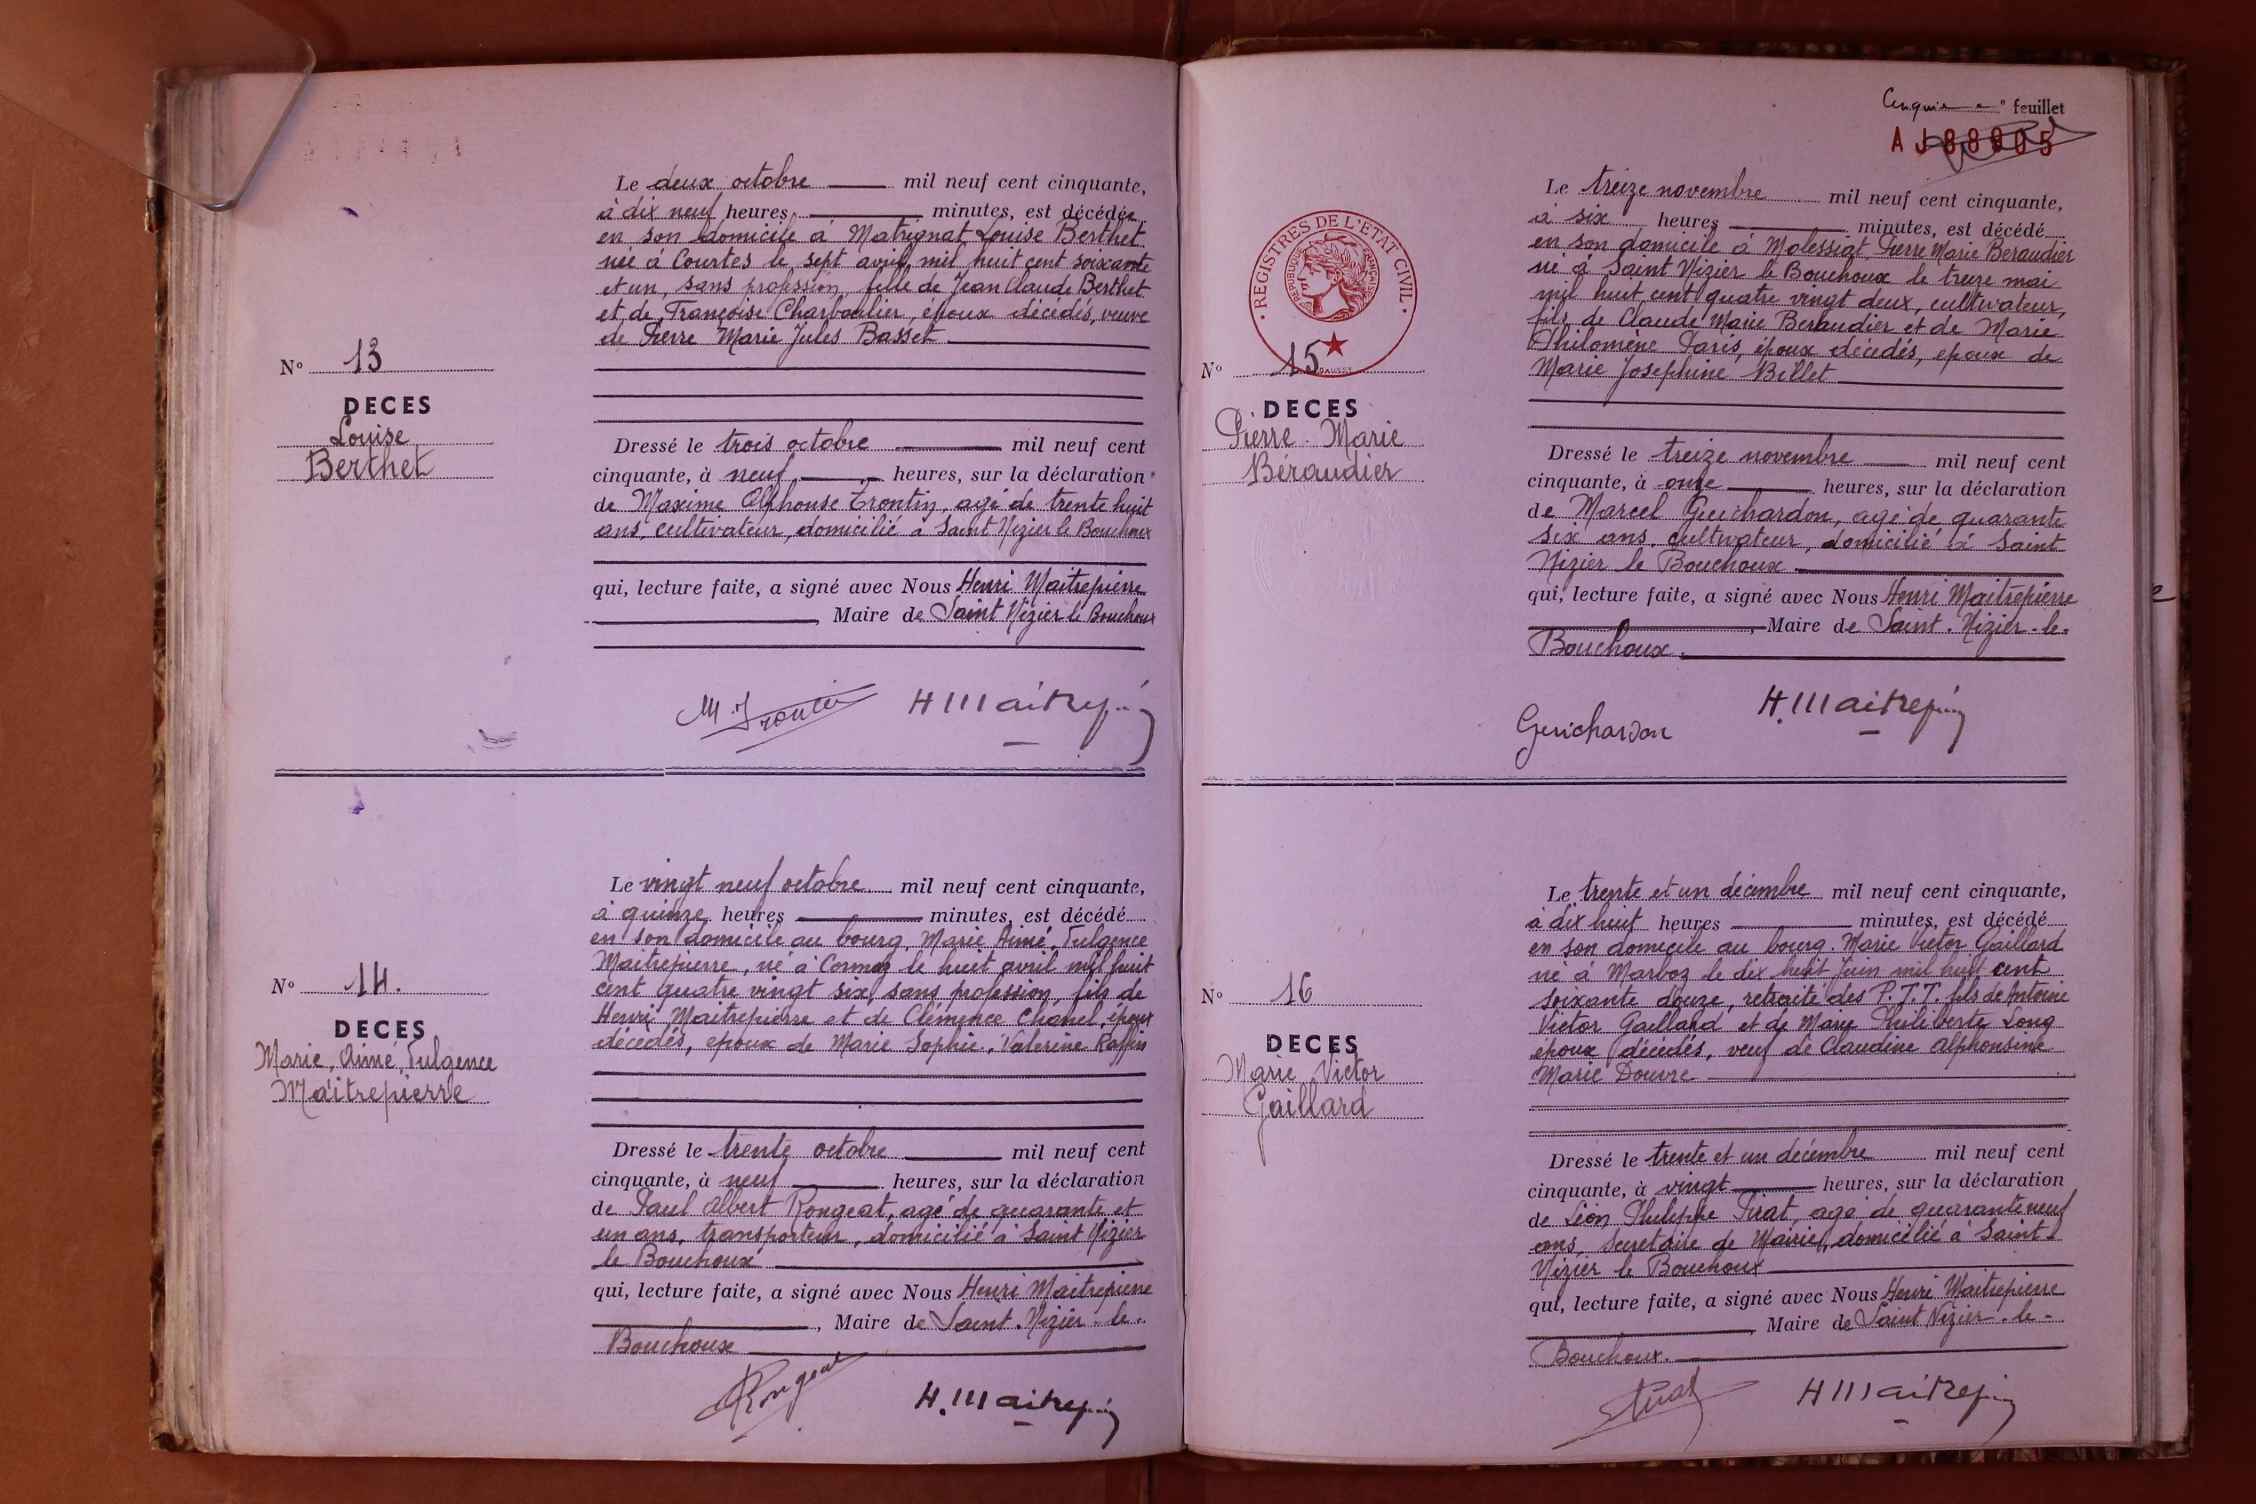 Le deux octobre mil neuf cent cinquante,
à dix neuf heures minutes, est décédée
en son domicile à Matrignat Louise Berthet
née à Courtes le sept avril mil huit cent soixante
et un, sans profession, fille de Jean Claude Berthet
et de Françoise Charbonlier, époux décédés, veuve
de Pierre Marie Jules Basset
No 13
DECES
Louise
Berthet
Dressé le trois octobre mil neuf cent
cinquante, à neuf heures, sur la déclaration
de Maxime Alphonse Trontin, agé de trente huit
ans, cultivateur, domicilié à Saint Nizier le Bouchoux
qui, lecture faite, a signé avec Nous Henri Maitrepierre
, Maire de Saint Nizier le Bouchoux
Le vingt neuf octobre mil neuf cent cinquante,
à quinze heures minutes, est décédé
en son domicile au bourg, Marie Aimé, Fulgence
Maitrepierre, né à Cormoz le huit avril mil huit
cent quatre vingt six, sans profession, fils de
Henri Maitrepierre et de Clémence Chanel, époux
décédés, epoux de Marie Sophie, Valerine Raffin
No 14.
DECES
Marie, Aimé, Fulgence
Maîtrepierre
Dressé le trente octobre mil neuf cent
cinquante, à neuf heures, sur la déclaration
de Paul Albert Rongeat, agé de quarante et
un ans, transporteur, domicilié à Saint Nizier
le Bouchoux
qui, lecture faite, a signé avec Nous Henri Maitrepierre
, Maire de Saint-Nizier-le-
Bouchoux
Rongeat H. Maitrepi
Cinquiè e feuillet
AJ88905
Le treize novembre mil neuf cent cinquante,
à six heures minutes, est décédé
en son domicile à Molessiat, Pierre Marie Beraudier
né à Saint Nizier le Bouchoux le treize mai
mil huit cent quatre vingt deux, cultivateur,
fils de Claude Marie Beraudier et de Marie
Philomène Paris, époux décédés, epoux de
Marie Josephine Billet
REGISTRES DE L'ETAT CIVIL
REPUBLIQUE FRANÇAISE
No 15
DECES
Pierre Marie
Béraudier
Dressé le treize novembre mil neuf cent
cinquante, à onze heures, sur la déclaration
de Marcel Guichardon, agé de quarante
six ans, cultivateur, domicilié à Saint
Nizier le Bouchoux
qui, lecture faite, a signé avec Nous Henri Maitrepierre
, Maire de Saint-Nizier-le-
Bouchoux.
Guichardon H. Maitrepi
Le trente et un décembre mil neuf cent cinquante,
à dix huit heures minutes, est décédé
en son domicile au bourg. Marie Victor Gaillard
né à Marboz le dix huit juin mil huit cent
soixante douze, retraité des P.T.T. fils de Antoine
Victor Gaillard et de Marie Philiberte Long
époux décédés, veuf de Claudine Alphonsine
Marie Douvre
No 16
DECES
Marie Victor
Gaillard
Dressé le trente et un décembre mil neuf cent
cinquante, à vingt heures, sur la déclaration
de Léon Philippe Pirat, agé de quarante neuf
ans, Secretaire de Mairie, domicilié à Saint
Nizier le Bouchoux
qui, lecture faite, a signé avec Nous Henri Maitrepierre
, Maire de Saint Nizier-le-
Bouchoux.
Pirat H Maitrepi